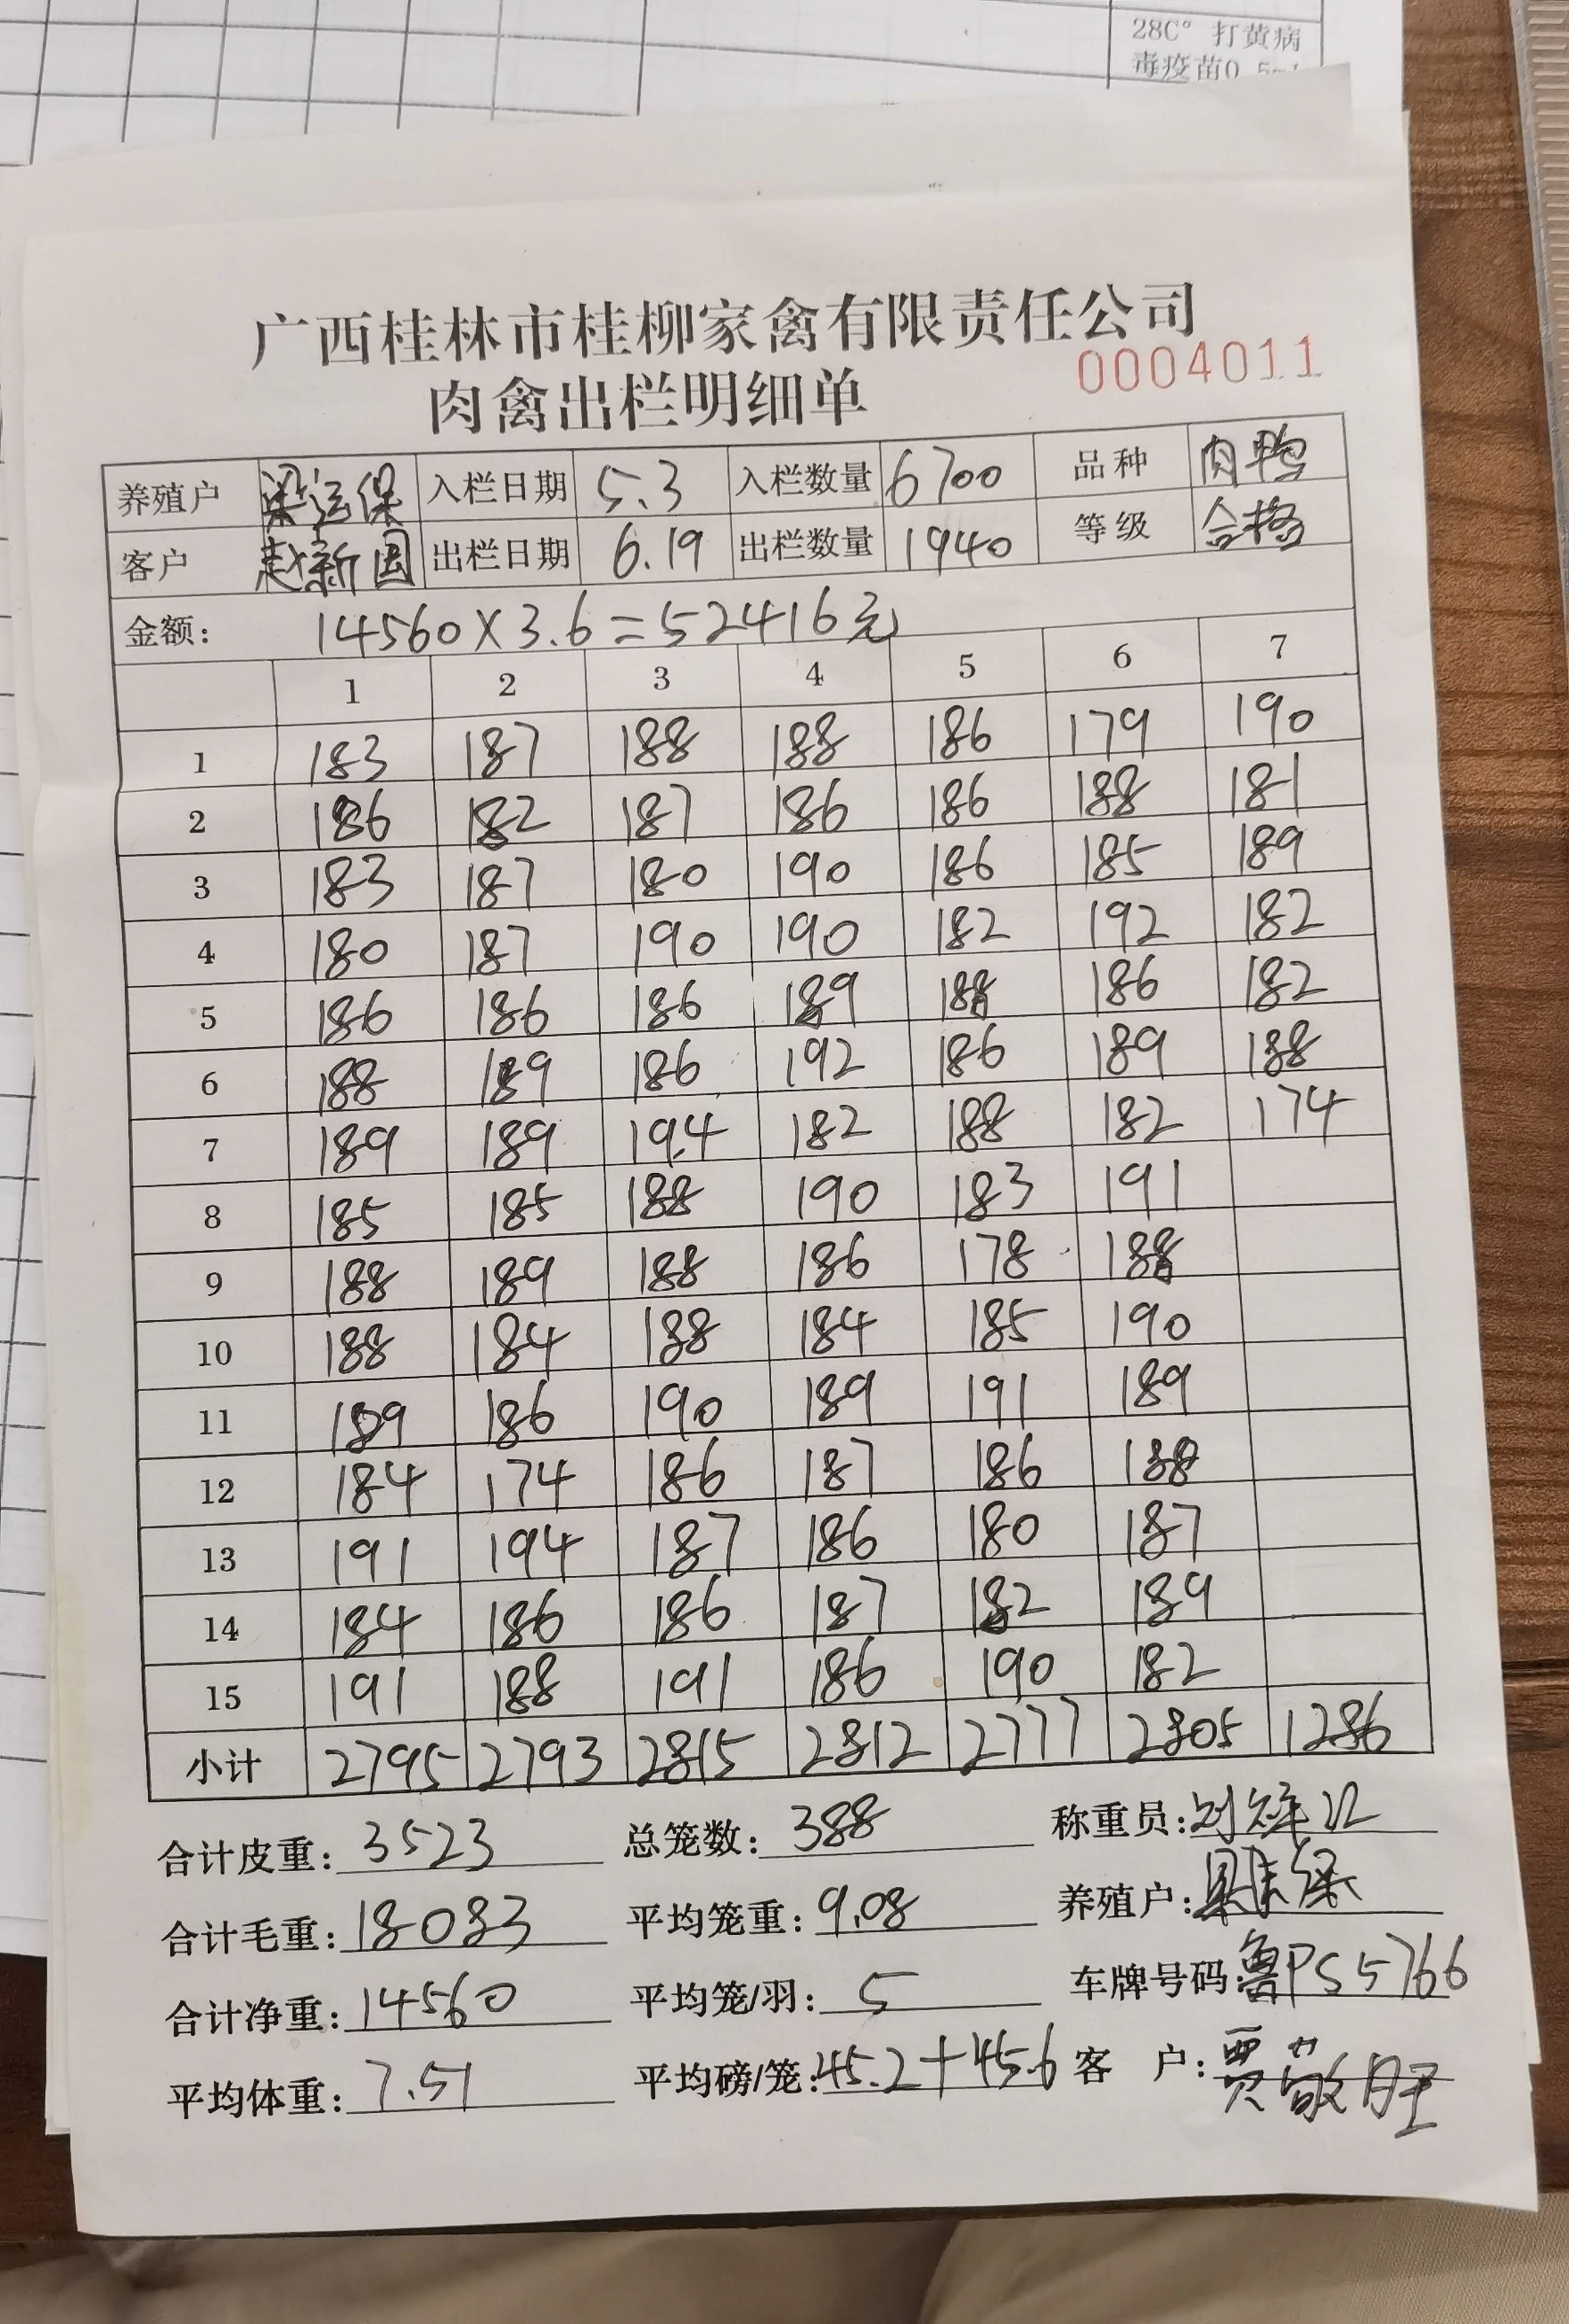 28C° 打黄病
毒疫苗0.5ml
广西桂林市桂柳家禽有限责任公司
0004011
肉禽出栏明细单
养殖户 梁运保 入栏日期 5.3 入栏数量 6700 品种 肉鸭
客户 赵新国 出栏日期 6.19 出栏数量 1940 等级 合格
金额: 14560×3.6=52416元
1 2 3 4 5 6 7
1 183 187 188 188 186 179 190
2 186 182 187 186 186 188 181
3 183 187 180 190 186 185 189
4 180 187 190 190 182 192 182
5 186 186 186 189 188 186 182
6 188 189 186 192 186 189 188
7 189 189 194 182 188 182 174
8 185 185 188 190 183 191
9 188 189 188 186 178 188
10 188 184 188 184 185 190
11 189 186 190 189 191 189
12 184 174 186 187 186 188
13 191 194 187 186 180 187
14 184 186 186 187 182 189
15 191 188 191 186 190 182
小计 2795 2793 2815 2812 2777 2805 1286
合计皮重: 3523 总笼数: 388 称重员:
合计毛重: 18083 平均笼重: 9.08 养殖户:
合计净重: 14560 平均笼/羽: 5 车牌号码: 鲁PS5766
平均体重: 7.51 平均磅/笼: 45.2+45.6 客 户: 贾敬旺